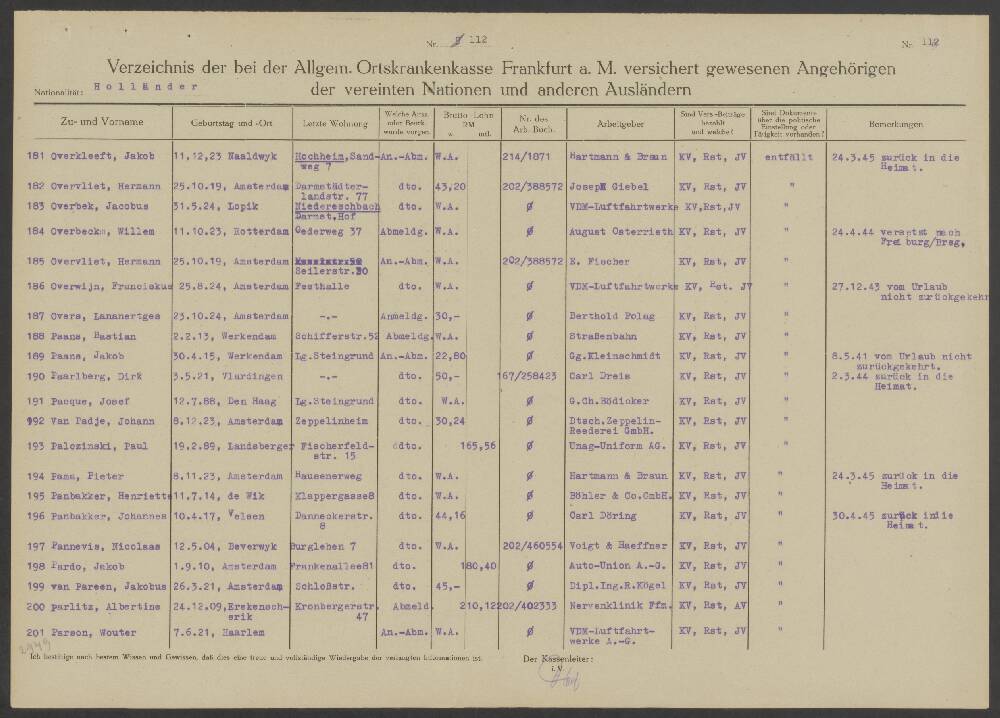 Nr. 112
Nr. 112
Verzeichnis der bei der Allgem. Ortskrankenkasse Frankfurt a. M. versichert gewesenen Angehörigen
Nationalität: Holländer der vereinten Nationen und anderen Ausländern
Zu- und Vorname | Geburtstag und -Ort | Letzte Wohnung | Welche Anm. oder Bestk. wurde vorgen. | Brutto-Lohn RM w. mtl. | Nr. des Arb.-Buch. | Arbeitgeber | Sind Vers.-Beiträge bezahlt und welche? | Sind Dokumente über die politische Einstellung oder Tätigkeit vorhanden? | Bemerkungen
181 Overkleeft, Jakob 11,12,23 Naaldwyk Hochheim,Sand- An.-Abm. W.A. 214/1871 Hartmann & Braun KV, Rst, JV entfällt 24.3.45 zurück in die
weg 7 Heimat.
182 Overvliet, Hermann 25.10.19, Amsterdam Darmstädter- dto. 43,20 202/388572 Joseph Giebel KV, Rst, JV "
landstr. 77
183 Overbek, Jacobus 31.5.24, Lopik Niedereschbach dto. W.A. Ø VDM-Luftfahrtwerke KV,Rst,JV "
Darmst,Hof
184 Overbecke, Willem 11.10.23, Rotterdam Oederweg 37 Abmeldg. W.A. Ø August Osterrieth KV, Rst, JV " 24.4.44 versetzt nach
Freiburg/Brsg.
185 Overvliet, Hermann 25.10.19, Amsterdam An.-Abm. W.A. 202/388572 E. Fischer KV, Rst, JV "
Seilerstr.20
186 Overwijn, Franciskus 25.8.24, Amsterdam Festhalle dto. W.A. Ø VDM-Luftfahrtwerke KV, Rst. JV " 27.12.43 vom Urlaub
nicht zurückgekehrt
187 Overs, Lanansertges 23.10.24, Amsterdam -.- Anmeldg. 30,- Ø Berthold Polag KV, Rst, JV "
188 Paans, Bastian 2.2.13, Werkendam Schifferstr.52 Abmeldg. W.A. Ø Straßenbahn KV, Rst, JV "
189 Paans, Jakob 30.4.15, Werkendam Lg.Steingrund An.-Abm. 22,80 Ø Gg.Kleinschmidt KV, Rst, JV " 8.5.41 vom Urlaub nicht
zurückgekehrt.
190 Paarlberg, Dirk 3.5.21, Vlardingen -.- dto. 50,- 167/258423 Carl Dreis KV, Rst, JV " 2.3.44 zurück in die
Heimat.
191 Pacque, Josef 12.7.88, Den Haag Lg.Steingrund dto. W.A. Ø G.Ch.Bödicker KV, Rst, JV "
992 Van Padje, Johann 8.12.23, Amsterdam Zeppelinheim dto. 30,24 Ø Dtsch.Zeppelin- KV, Rst, JV "
Reederei GmbH.
193 Palozinski, Paul 19.2.89, Landsberger Fischerfeld- ddto. 165,56 Ø Unag-Uniform AG. KV, Rst, JV "
str. 15
194 Pama, Pieter 8.11.23, Amsterdam Hausenerweg dto. W.A. Ø Hartmann & Braun KV, Rst, JV " 24.3.45 zurück in die
Heimat.
195 Panbakker, Henriette 11.7.14, de Wik Klappergasse8 dto. W.A. Ø Böhler & Co.GmbH. KV, Rst, JV "
196 Panbakker, Johannes 10.4.17, Velsen Danneckerstr. dto. 44,16 Ø Carl Döring KV, Rst, JV " 30.4.45 zurück in die
8 Heimat.
197 Pannevis, Nicolaas 12.5.04, Beverwyk Burgleben 7 dto. W.A. 202/460554 Voigt & Haeffner KV, Rst, JV "
198 Pardo, Jakob 1.9.10, Amsterdam Frankenallee81 dto. 180,40 Ø Auto-Union A.-G. KV, Rst, JV "
199 van Pareen, Jakobus 26.3.21, Amsterdam Schloßstr. dto. 45,- Ø Dipl.Ing.R.Kögel KV, Rst, JV "
200 parlitz, Albertine 24.12.09,Erekensch- Kronbergerstr. Abmeld. 210,12 202/402333 Nervenklinik Ffm. KV, Rst, AV "
erik 47
201 Parson, Wouter 7.6.21, Haarlem An.-Abm. W.A. Ø VDM-Luftfahrt- KV, Rst, JV "
werke A.-G.
2949
Ich bestätige nach bestem Wissen und Gewissen, daß dies eine treue und vollständige Wiedergabe der verlangten Informationen ist. Der Kassenleiter:
i.V.